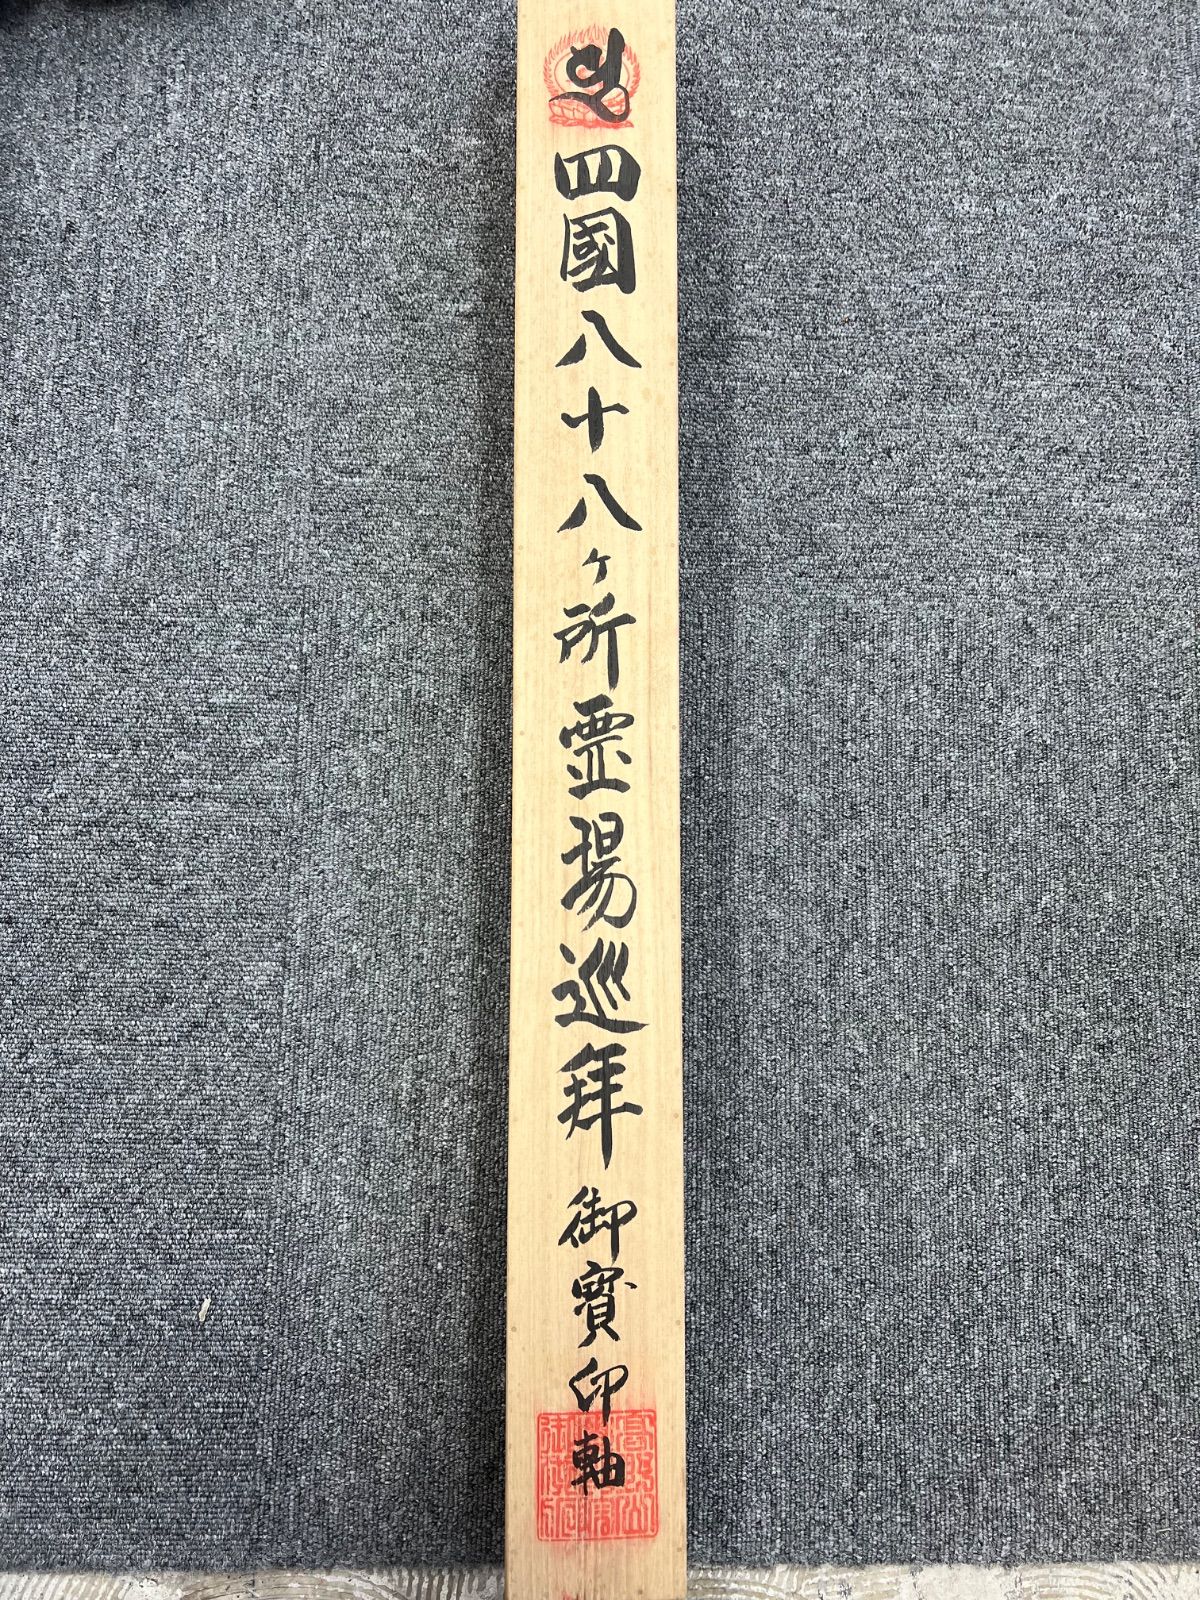 四國八十八ヶ所霊場巡拜御寳印軸